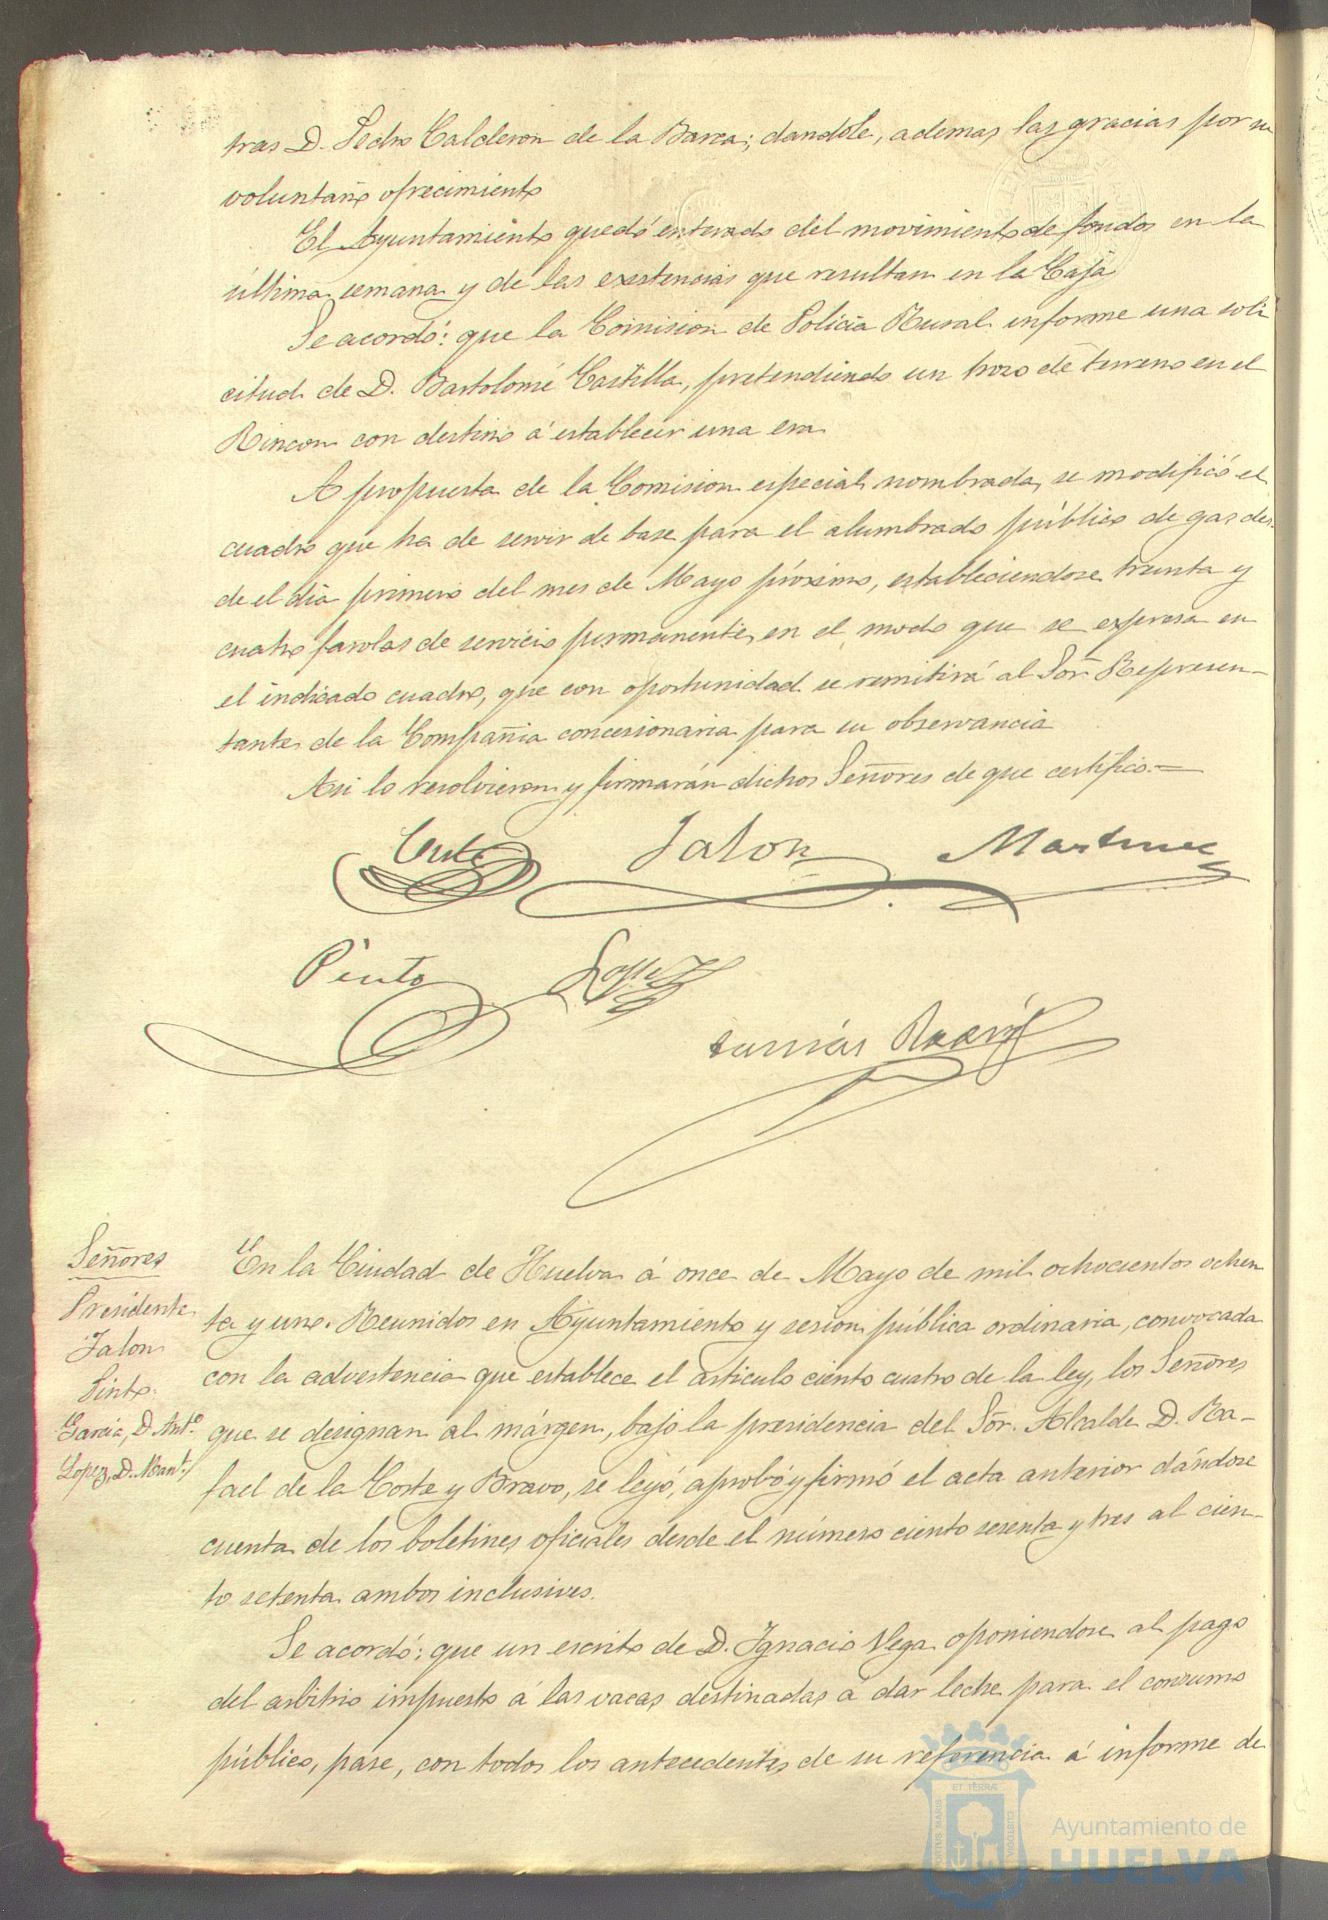 tras D. Pedro Calderon de la Barca; dandole, ademas, las gracias por su
voluntario ofrecimiento
El Ayuntamiento quedó enterado del movimiento de fondos en la
última semana y de las existencias que resultan en la Caja
Se acordó: que la Comision de Policia Rural informe una soli
citud de D. Bartolomé Castilla, pretendiendo un trozo de terreno en el
Rincon con destino á establecer una era
A propuesta de la Comision especial nombrada, se modificó el
cuadro que ha de servir de base para el alumbrado público de gas des-
de el dia primero del mes de Mayo próximo, estableciendose treinta y
cuatro farolas de servicio permanente, en el modo que se expresa en
el indicado cuadro, que con oportunidad se remitirá al Sor. Represen-
tante de la Compañia concesionaria para su observancia
Asi lo resolvieron y firmarán dichos Señores de que certifico.=
Corte Jalon Martinez
Pinto Lopez
Señores
Presidente
Jalon
Pinto.
Garcia, D. Antº
Lopez, D. Manl.
En la Ciudad de Huelva á once de Mayo de mil ochocientos ochen
ta y uno. Reunidos en Ayuntamiento y sesion pública ordinaria, convocada
con la advertencia que establece el articulo ciento cuatro de la ley, los Señores
que se designan al márgen, bajo la presidencia del Sor. Alcalde D. Ra-
fael de la Corte y Bravo, se leyó, aprobó y firmó el acta anterior dándose
cuenta de los boletines oficiales desde el número ciento sesenta y tres al cien-
to setenta ambos inclusives.
Se acordó: que un escrito de D. Ignacio Vega oponiendose al pago
del arbitrio impuesto á las vacas destinadas á dar leche para el consumo
público, pase, con todos los antecedentes de su referencia á informe de
Ayuntamiento de
HUELVA